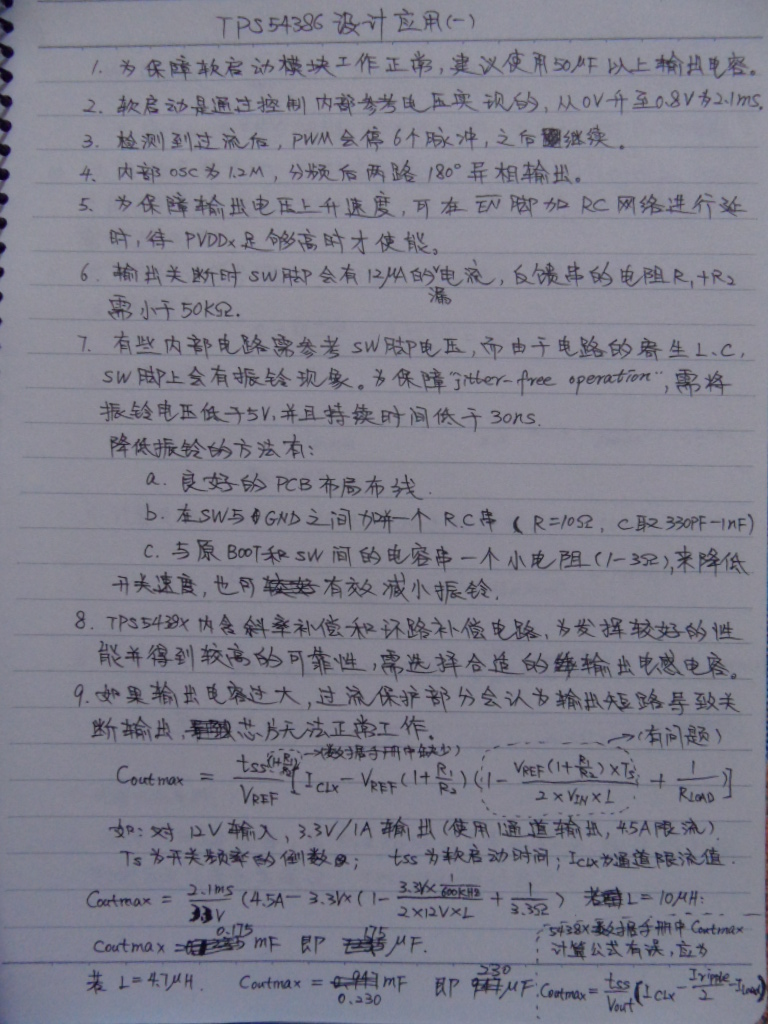 TPS54386 设计应用(一)
1. 为保障软启动模块工作正常,建议使用50μF以上输出电容。
2. 软启动是通过控制内部参考电压实现的,从0V升至0.8V为2.1ms.
3. 检测到过流后,PWM会停6个脉冲,之后继续。
4. 内部OSC为1.2M,分频后两路180°异相输出。
5. 为保障输出电压上升速度,可在EN脚加RC网络进行延
时,待PVDDx足够高时才使能。
6. 输出关断时SW脚会有12μA的漏电流,反馈串的电阻R1+R2
需小于50KΩ.
7. 有些内部电路需参考SW脚电压,而由于电路的寄生L.C,
SW脚上会有振铃现象。为保障"jitter-free operation",需将
振铃电压低于5V,并且持续时间低于30ns.
降低振铃的方法有:
a. 良好的PCB布局布线.
b. 在SW与GND之间加一个R.C串(R=10Ω, C取330PF-1nF)
c. 与原BOOT和SW间的电容串一个小电阻(1-3Ω),来降低
开关速度,也可有效减小振铃.
8. TPS5438x内含斜率补偿和环路补偿电路,为发挥较好的性
能并得到较高的可靠性,需选择合适的输出电感电容。
9. 如果输出电容过大,过流保护部分会认为输出短路导致关
断输出,芯片无法正常工作.
(数据手册中缺少) →(有问题)
Coutmax = tss(1+R1/R2)/VREF [ICLx - VREF(1+R1/R2)(1 - VREF(1+R1/R2)×Ts/2×VIN×L + 1/RLOAD)]
如:对12V输入,3.3V/1A输出(使用1通道输出,4.5A限流)
Ts为开关频率的倒数; tss为软启动时间; ICLx为通道限流值.
Coutmax = 2.1ms/3.3V (4.5A - 3.3V×(1 - 3.3V×1/600KHz/2×12V×L + 1/3.3Ω) 若L=10μH:
Coutmax = 0.175 mF 即 175 μF.
5438x数据手册中Coutmax
计算公式有误,应为
若 L=4.7μH. Coutmax = 0.230 mF 即 230 μF.
Coutmax = tss/Vout (ICLx - Iripple/2 - Iload)